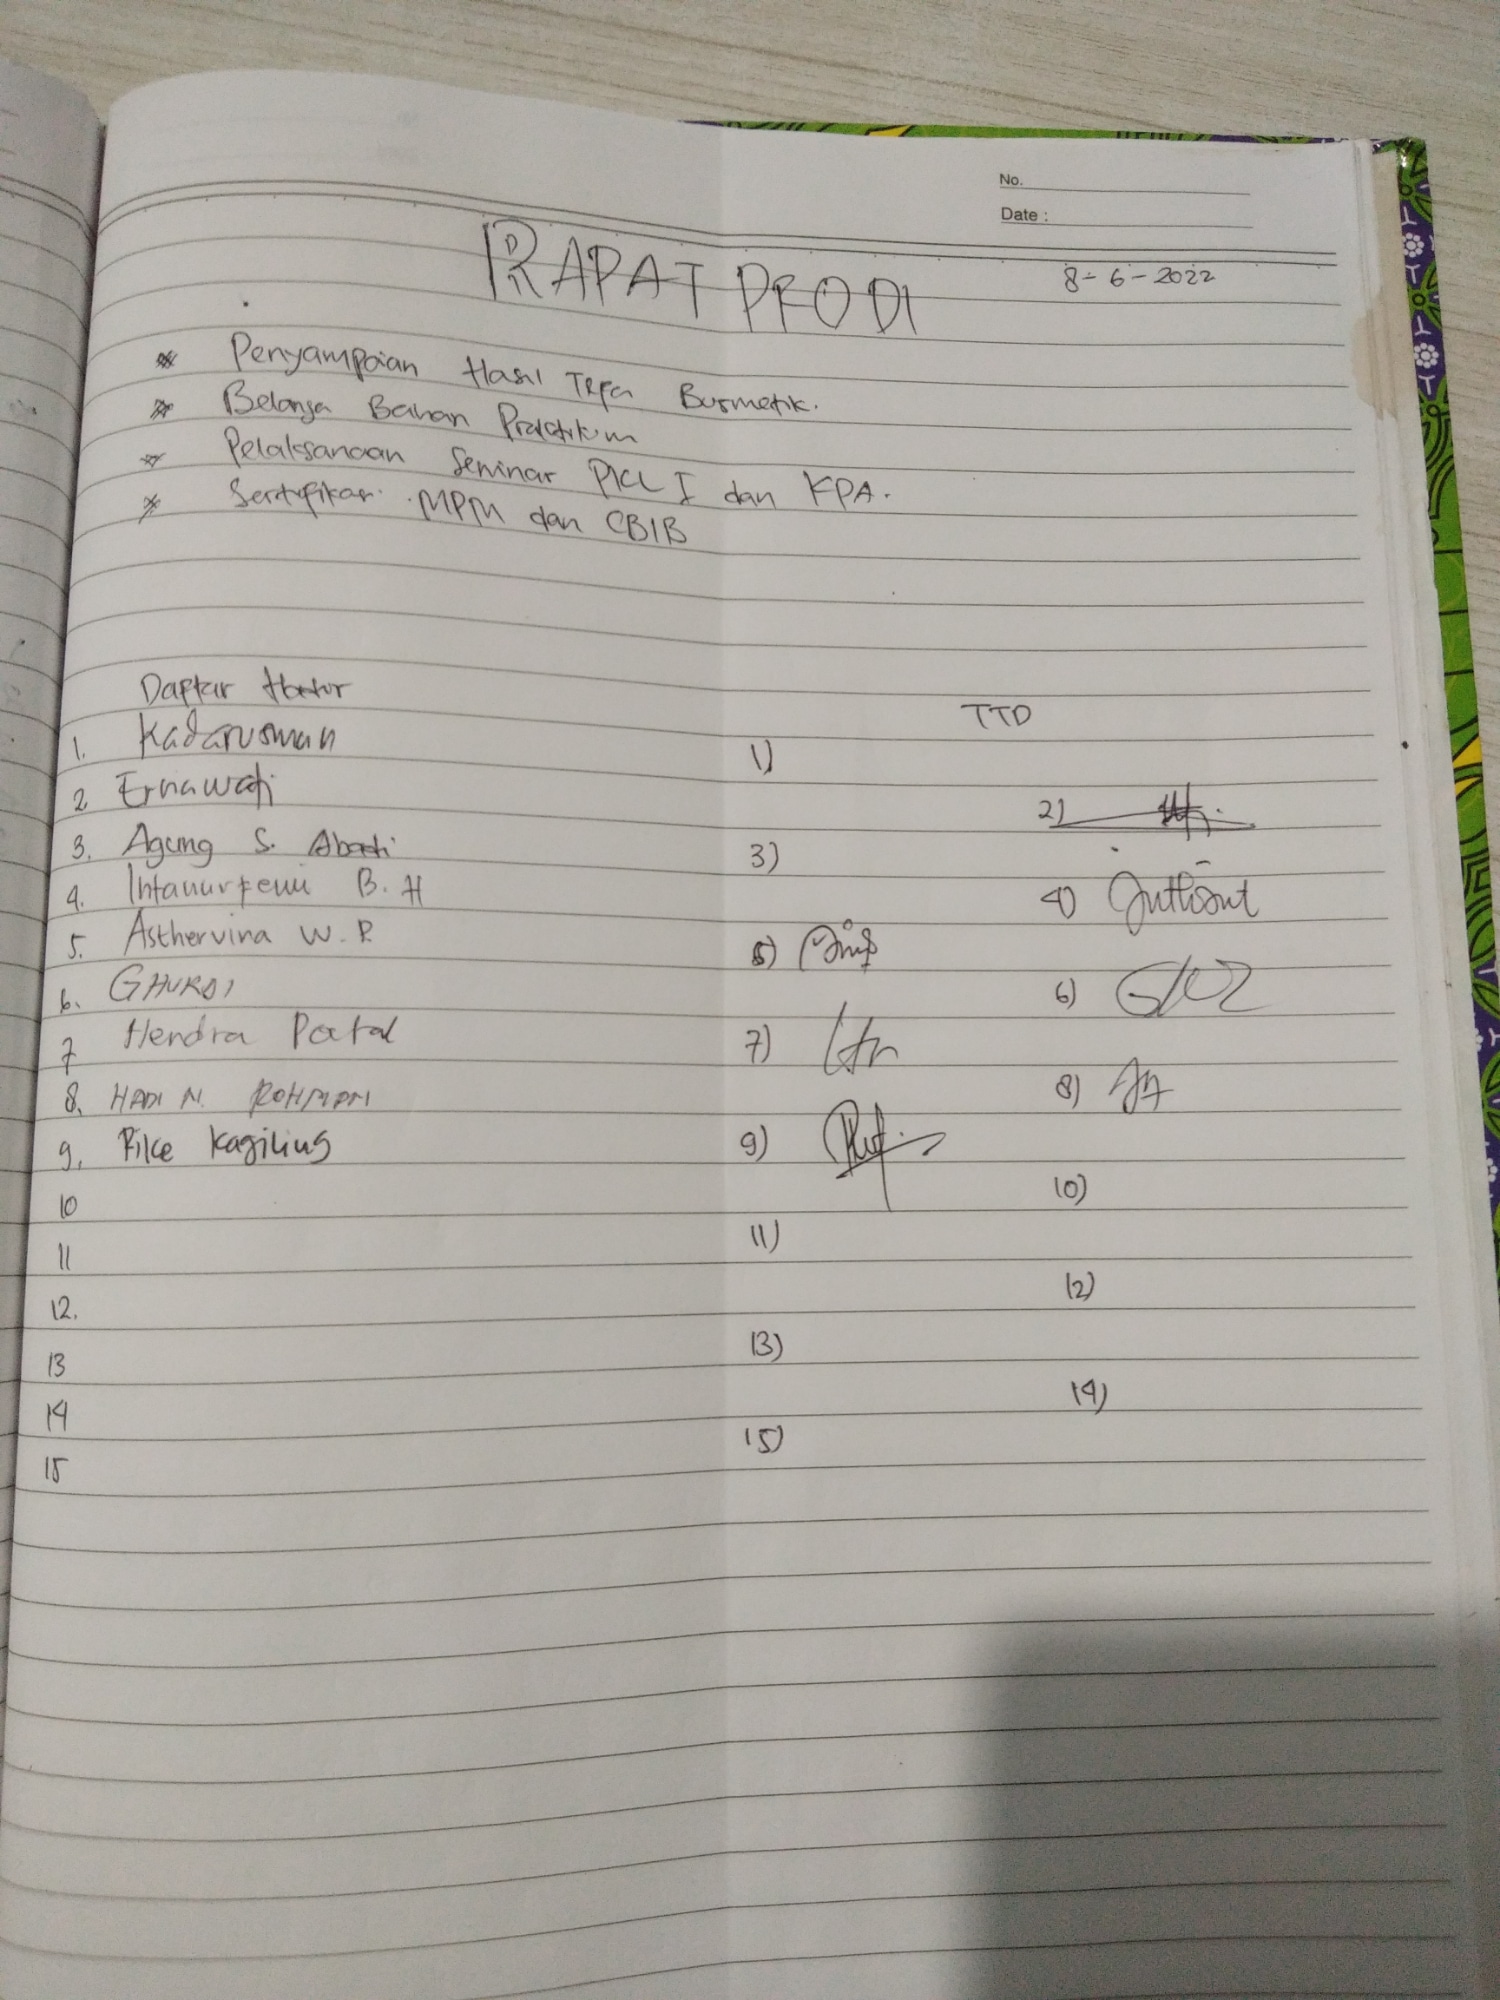 No.
Date :
8-6-2022
RAPAT PRODI
* Penyampaian Hasil Tefa Busmetik.
* Belanja Bahan Praktikum
* Pelaksanaan Seminar PKL I dan KPA.
* Sertifikasi MPM dan CBIB
Daftar Hadir
TTD
1. Kadarusman
1)
2 Ernawati
2)
3. Agung S. Abadi
3)
4. Intanurfemi B. H
4)
5. Asthervina W. P.
5)
6. GHUFDI
6)
7 Hendra Poltak
7)
8. HADI M. ROHMAN
8)
9. Rike Kagiling
9)
10
10)
11
11)
12.
12)
13
13)
14
14)
15
15)